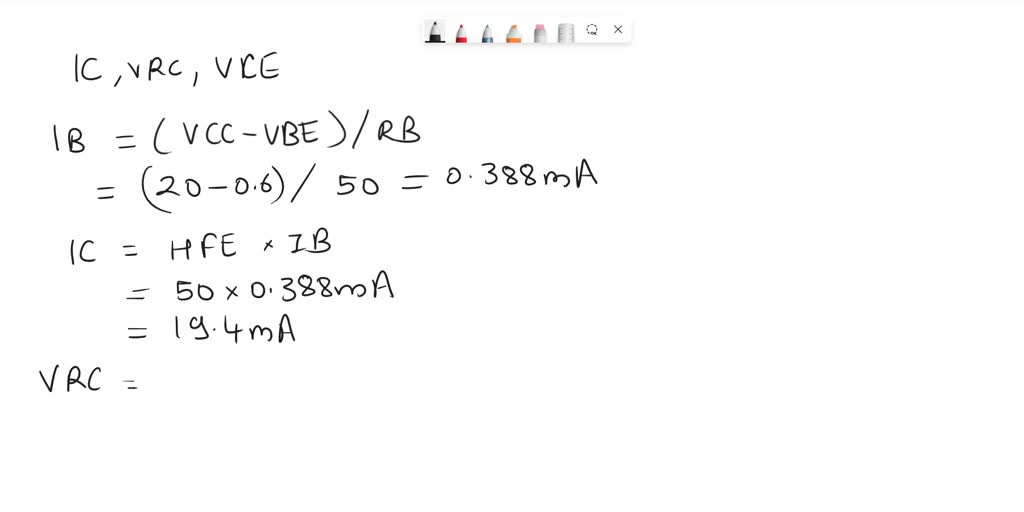 IC, VRC, VCE
IB = (VCC-VBE)/RB
= (20-0.6)/ 50 = 0.388mA
IC = HFE × IB
= 50 × 0.388mA
= 19.4mA
VRC =